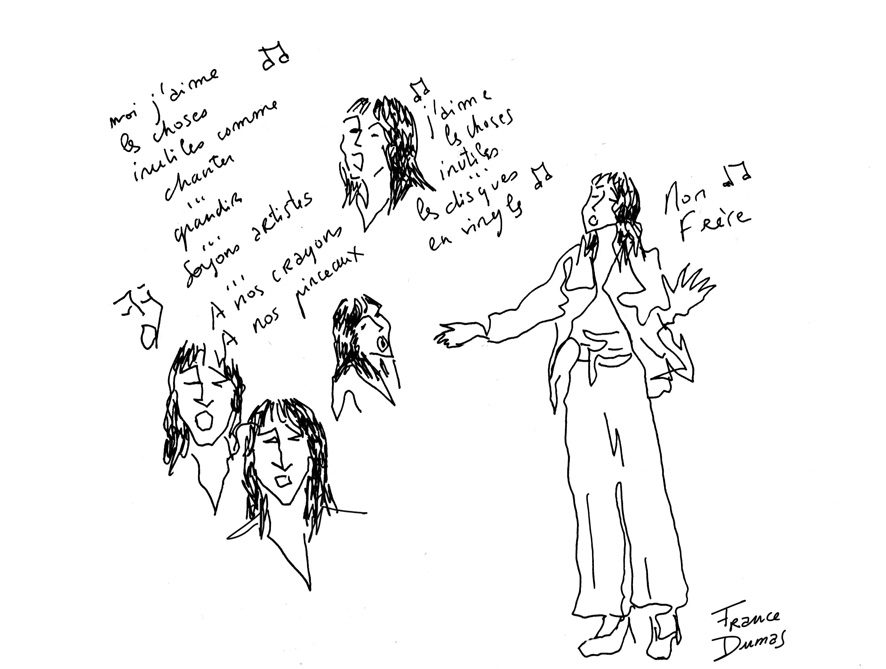 moi j'aime
les choses
inutiles comme
chanter
...
grandir
...
Soyons artistes
...
A nos crayons
A nos pinceaux
j'aime
les choses
inutiles
...
les disques
en vinyle
Mon
Frère
France
Dumas